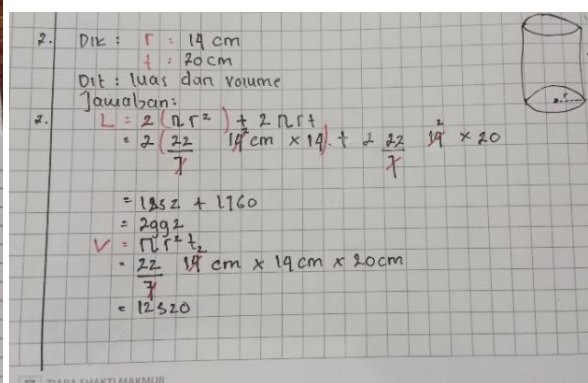 2. Dik : r : 14 cm
t : 20 cm
Dit : luas dan volume
Jawaban :
2. L = 2 (πr²) + 2πrt
= 2 (22/7 14² cm × 14) + 2 22/7 14² × 20
= 1232 + 1760
= 2992
V = πr²t
= 22/7 14² cm × 14 cm × 20 cm
= 12320
TIARA SHAKTI MAKMUR